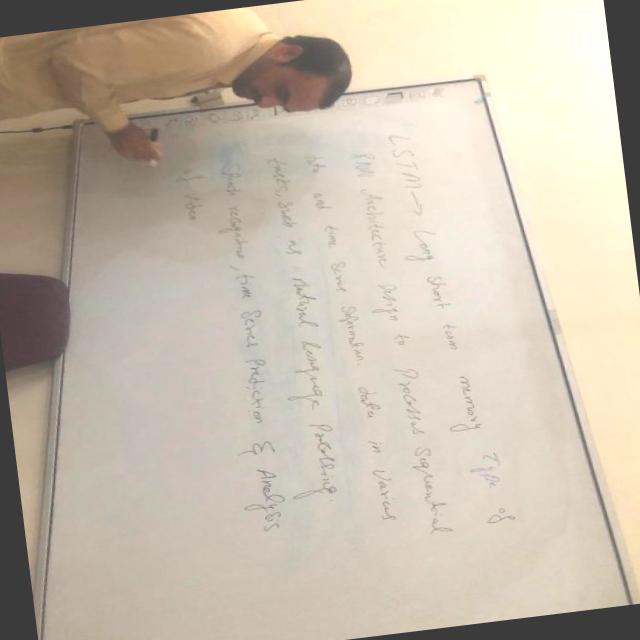 LSTM → Long short term memory Type of
RNN Architecture Design to Process Sequential
and time Series information. data in Various
tasks, such as natural language Processing.
Speech recognition, time Series Prediction & Analysis
of